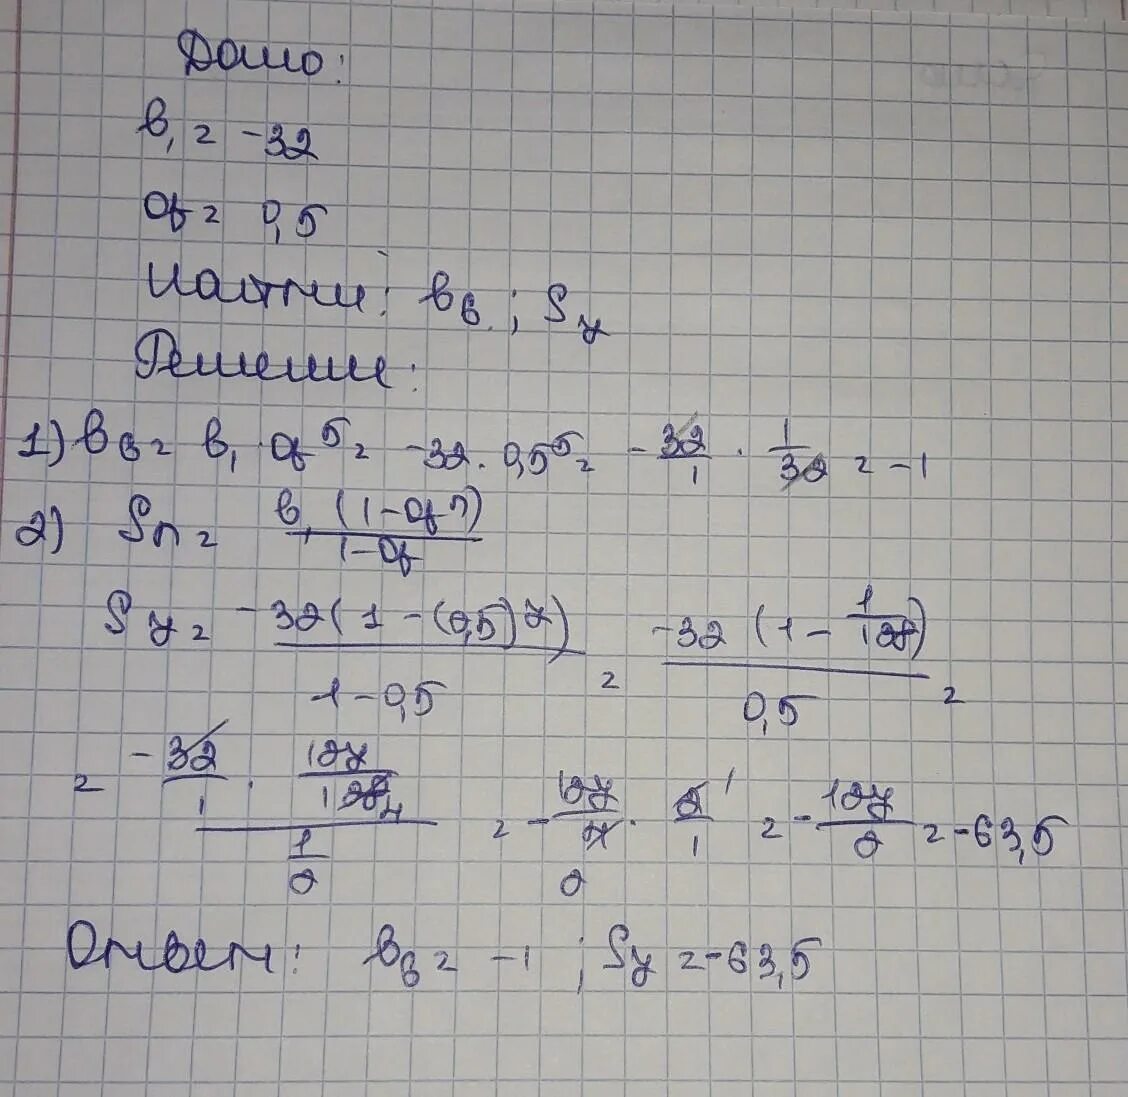 Дано:
b₁ = -32
q = 0,5
Найти: b₆ ; S₇
Решение:
1) b₆ = b₁ · q⁵ = -32 · 0,5⁵ = -32/1 · 1/32 = -1
2) Sn = b₁(1-qⁿ)/1-q
S₇ = -32(1-(0,5)⁷)/1-0,5 = -32(1-1/128)/0,5 =
= -32/1 · 127/128 4 / 1/2 = -127/4 2 · 2/1 1 = -127/2 = -63,5
Ответ: b₆ = -1 ; S₇ = -63,5